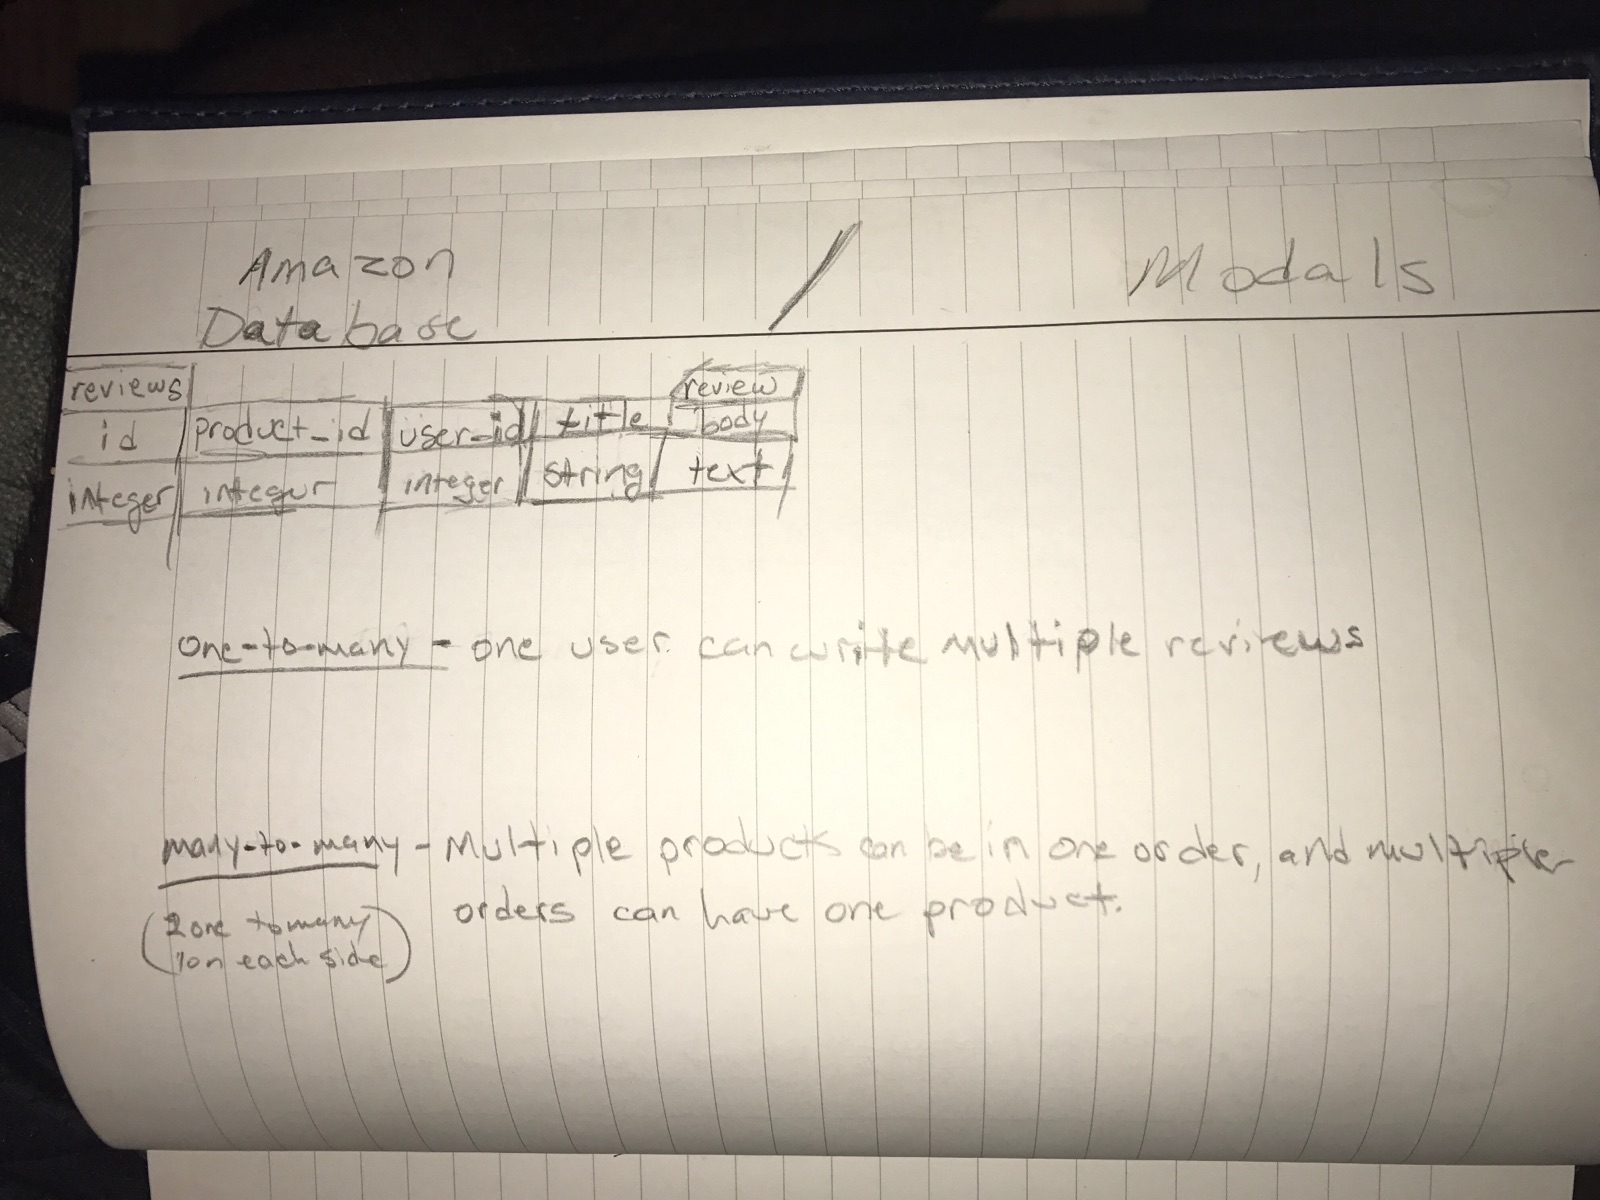 Amazon / Modals
Database
reviews review
id product_id user_id title body
integer integur integer string text
one-to-many - one user can write multiple reviews
many-to-many - Multiple products can be in one order, and multiple
orders can have one product.
(2 one to many
1 on each side)